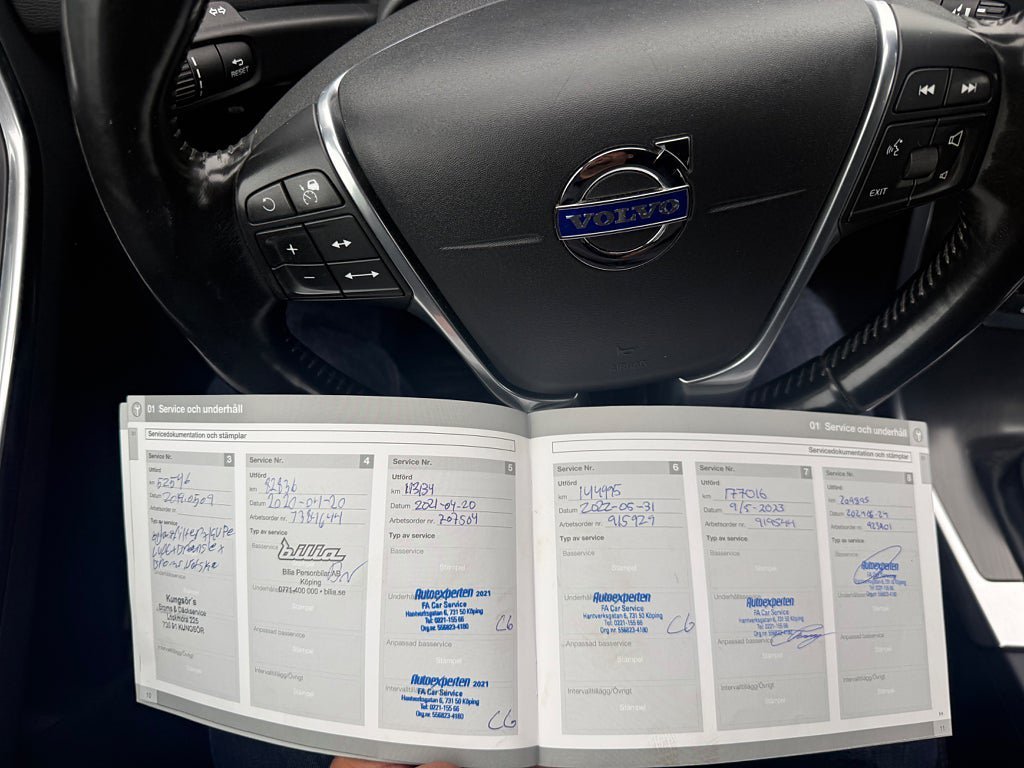 RESET
EXIT
VOLVO
01 Service och underhåll
Servicedokumentation och stämplar
Service Nr. 3
Utförd
km 52546
Datum
Arbetsorder nr.
Typ av service
Kungsör's
Broms & Däckservice
736 91 KUNGSÖR
10
Service Nr. 4
Utförd
km 82836
Datum 2020-04-20
Arbetsorder nr.
Typ av service
Basservice
bilia
Bilia Personbilar AB
Köping
0771-400 000 • bilia.se
Anpassad basservice
Stämpel
Intervalltillägg/Övrigt
Stämpel
Service Nr. 5
Utförd
km 113134
Datum 2021-04-20
Arbetsorder nr. 707504
Typ av service
Basservice
Stämpel
Autoexperten 2021
FA Car Service
Hantverksgatan 6, 731 50 Köping
Tel: 0221-155 66
Org.nr: 556823-4180
CG
Anpassad basservice
Stämpel
Autoexperten 2021
FA Car Service
Hantverksgatan 6, 731 50 Köping
Tel: 0221-155 66
Org.nr: 556823-4180
CG
01 Service och underhåll
Servicedokumentation och stämplar
Service Nr. 6
Utförd
km 144975
Datum 2022-05-31
Arbetsorder nr. 915929
Typ av service
Basservice
Stämpel
Autoexperten
FA Car Service
Hantverksgatan 6, 731 50 Köping
Tel: 0221-155 66
Org.nr: 556823-4180
CG
Anpassad basservice
Stämpel
Intervalltillägg/Övrigt
Stämpel
Service Nr. 7
Utförd
km 177016
Datum 9/5-2023
Arbetsorder nr. 9195441
Typ av service
Basservice
Stämpel
Autoexperten
FA Car Service
Hantverksgatan 6, 731 50 Köping
Tel: 0221-155 66
Org.nr: 556823-4180
Anpassad basservice
Stämpel
Intervalltillägg/Övrigt
Stämpel
Service Nr. 8
Utförd
km
Datum
Arbetsorder nr.
Typ av service
Basservice
Autoexperten
FA Car Service
Anpassad basservice
Stämpel
Intervalltillägg/Övrigt
Stämpel
11